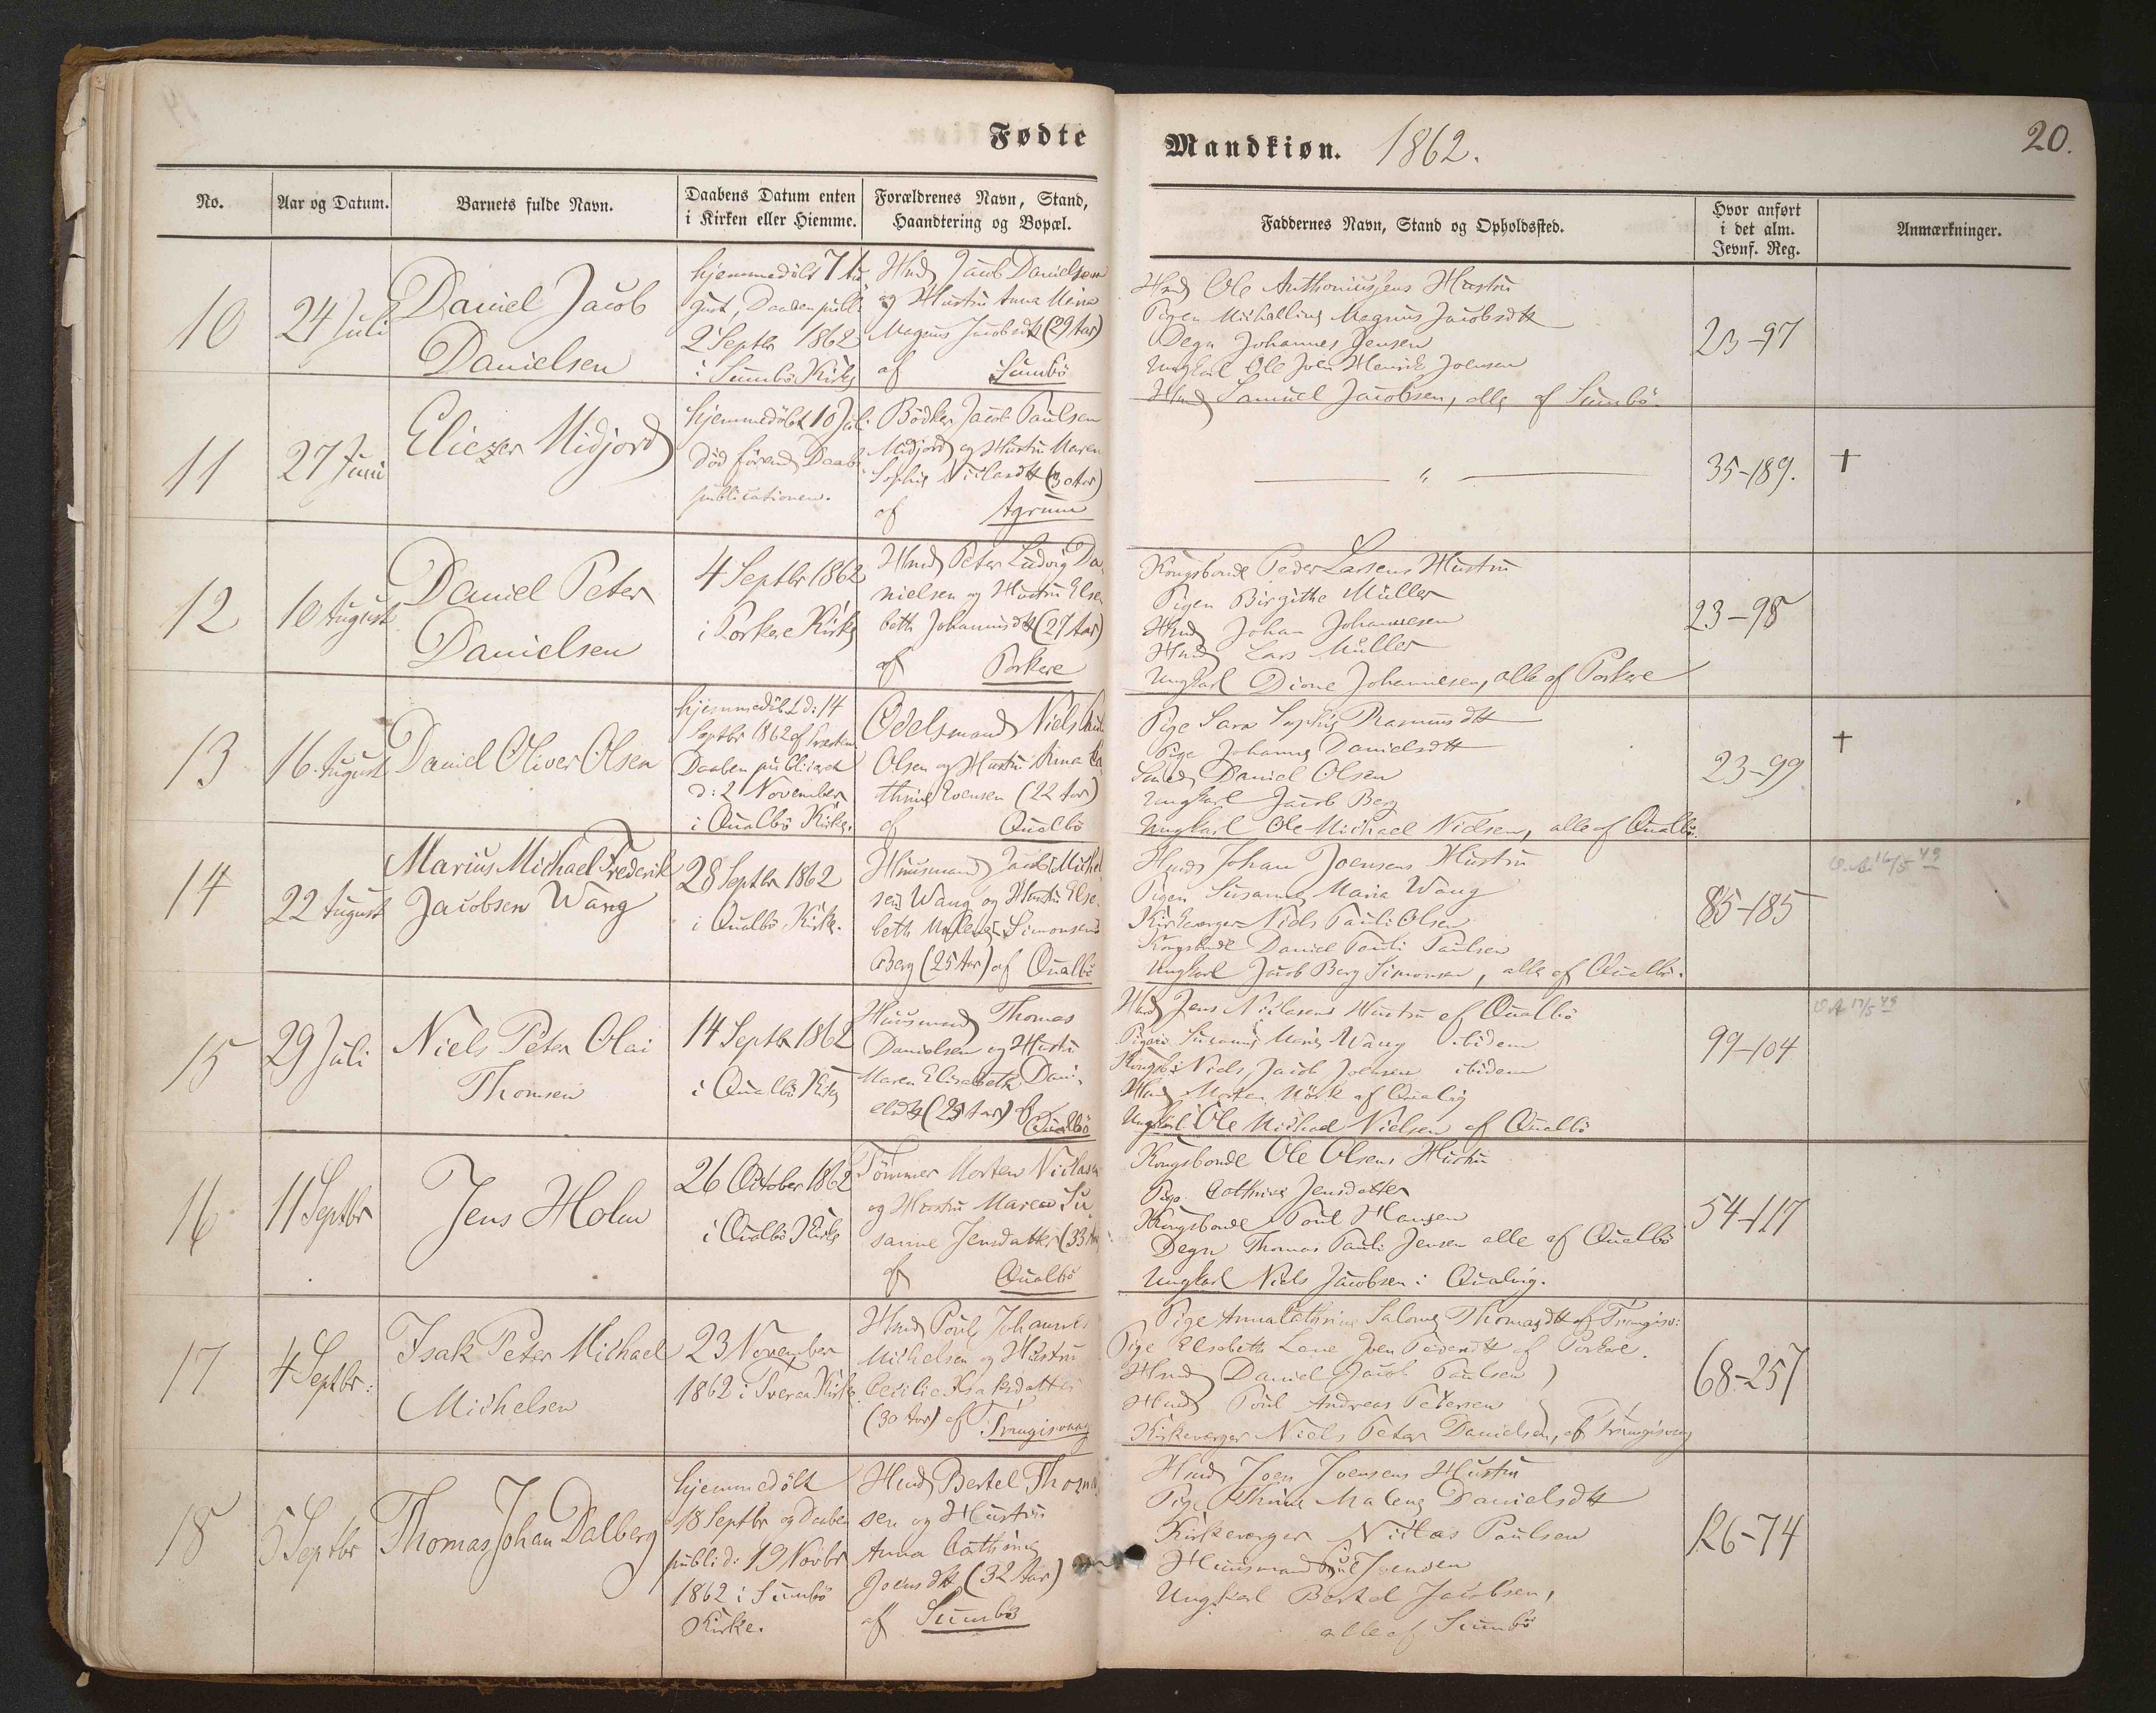 Fødte
Mandkiøn. 1862.
20.
No.
Aar og Datum.
Barnets fulde Navn.
Daabens Datum enten
i Kirken eller Hiemme.
Forældrenes Navn, Stand,
Haandtering og Bopæl.
Faddernes Navn, Stand og Opholdssted.
Hvor anført
i det alm.
Jevnf. Reg.
Anmærkninger.
10
24 Juli
Daniel Jacob
Danielsen
hjemmedöbt 7 Au
gust, Daaben publ:
2 Septbr 1862
i Sumbö Kirke
Hmd Jacob Danielsen
og Hustru Anna Maria
Magnus Jacobsdtt (29 Aar)
af Sumbö
Hmd Ole Anthoniussens Hustru
Pigen Michelline Magnus Jacobsdtt
Degn Johannes Jensen
Ungkarl Ole Joen Henrik Joensen
Hmd Samuel Jacobsen, alle af Sumbö.
23-97
11
27 Juni
Eliezer Midjord
hjemmedöbt 10 Juli
död förend Daabs
publicationen.
Bödker Jacob Paulsen
Midjord og Hustru Maren
Sophie Niclasdtt (30 Aar)
af Agrum
"
35-189.
+
12
10 August
Daniel Peter
Danielsen
4 Septbr 1862
i Porkere Kirke
Hmd Peter Ludvig Da-
nielsen og Hustru Else
beth Johannisdtt (27 Aar)
af Porkere
Kongsbonde Peder Larsens Hustru
Pigen Birgithe Müller
Hmd Johan Johannesen
Hmd Lars Müller
Ungkarl Dione Johannesen, alle af Porkere
23-98
13
16. August
Daniel Oliver Olsen
hjemmedöbt d: 14
Septbr 1862 af Præsten
Daaben publiceret
d: 2 November
i Qualbö Kirke.
Odelsmand Niels
Olsen og Hustru Anna Ca
thrine Evensen (22 Aar)
af Qualbö
Pige Sara Sophie Rasmusdtt
Pige Johanne Danielsdtt
Daniel Olsen
Ungkarl Jacob Berg
Ungkarl Ole Michael Nielsen, alle af Qualbö.
23-99
+
14
22 August
Marius Michael Frederik
Jacobsen Wang
28 Septbr 1862
i Qualbö Kirke.
Huusmand Jacob Michel
sen Wang og Hustru Else-
beth Malene Simonsen
Berg (25 Aar) af Qualbö
Hmds Johan Joensens Hustru
Pigen Susanne Maria Wang
Kirkeværger Niels Pauli Olsen
Kongsbonde Daniel Pauli Paulsen
Ungkarl Jacob Berg Simonsen, alle af Qualbö.
85-185
15
29 Juli
Niels Peter Olai
Thomsen
14 Septbr 1862
i Qualbö Kirke
Huusmand Thomas
Danielsen og Hustru
Maren Elisabeth Dani-
elsdtt (25 Aar) af
Qualbö
Hmd Jens Niclasens Hustru af Qualbö
Pigen Susanne Marie Wang ibidem
Kongsb: Niels Jacob Joensen ibidem
Hmd Morten Mörk af Qualvig
Ungkarl Ole Michael Nielsen af Qualbö
99-104
16
11 Septbr
Jens Holm
26 October 1862
i Qualbö Kirke
Tömmer Morten Niclasen
og Hustru Maren Su-
sanne Jensdatter (33 Aar)
af Qualbö
Kongsbonde Ole Olsens Hustru
Pige Cathrine Jensdatter
Kongsbonde Poul Hansen
Degn Thomas Pauli Jensen alle af Qualbö
Ungkarl Niels Jacobsen i Qualvig.
54-117
17
4 Septbr:
Isak Peter Michael
Michelsen
23 November
1862 i Sveren Kirke
Hmd Poul Johannes
Michelsen og Hustru
Cecilie Isaksdatter
(30 Aar) af Trangisvaag
Pige Anna Cathrine Salome Thomasdtt af Trangisv:
Pige Elsebeth Lene Joen Pedersdtt af Porkere.
Hmd Daniel Jacob Paulsen
Hmd Poul Andreas Petersen
Kirkeværger Niels Peter Danielsen, af Trangisvaag
68-257
18
5 Septbr
Thomas Johan Dalberg
hjemmedöbt
18 Septbr og Daaben
publ: d: 19 Novbr
1862 i Sumbö
Kirke.
Hmd Bertel Thom
sen og Hustru
Anna Cathrine
Joensdtt (32 Aar)
af Sumbö
Hmd Joen Joensens Hustru
Pige Thrine Malene Danielsdtt
Kirkeværger Niclas Poulsen
Huusmand Poul Joensen
Ungkarl Bertel Jacobsen,
alle af Sumbö
126-74